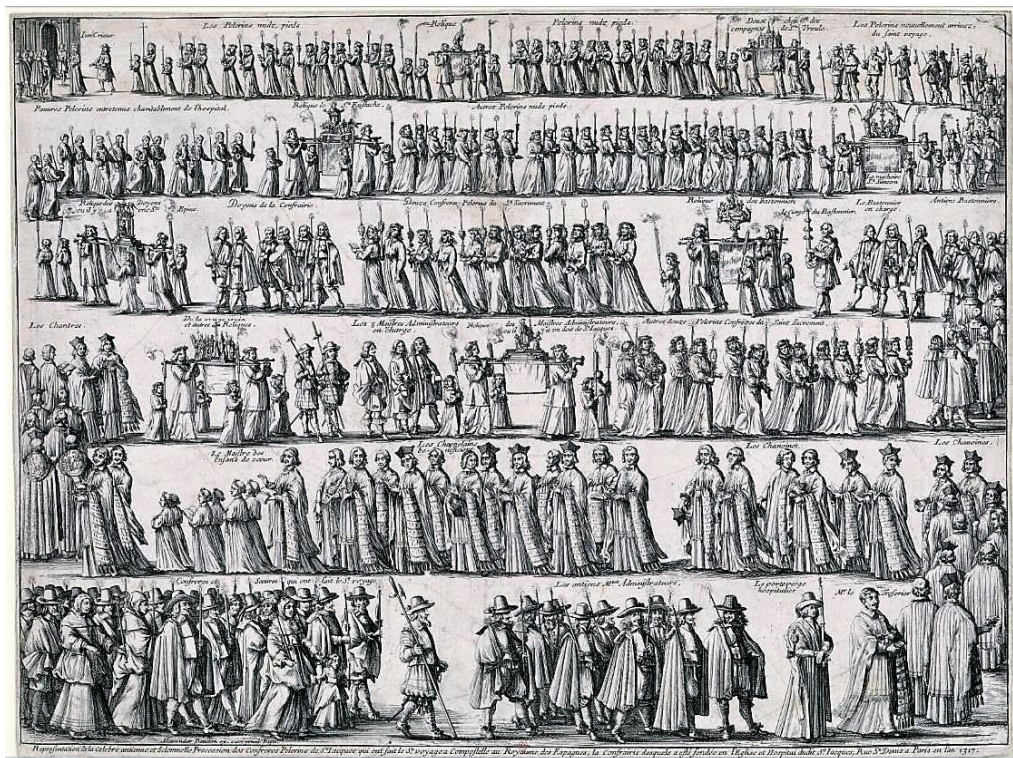 Les Pelerins nudz pieds.
Relique
Pelerins nudz pieds.
Douze chefs des
compagnes de Ste Vrsule.
Les Pelerins nouvellement arrivez
du saint voyage.
Juré Crieur
Pauvres Pelerins entretenus charitablement de l'hospital.
Relique de St Eustache.
Autres Pelerins nudz pieds.
La machoire
St Simeon
Relique des Doyens
ou il y a
Doyens de la Confrairie.
Douze Confreres Pelerins du St Sacrement
Relique des Bastonniers
le Clerc du Bastonnier
Le Bastonnier
en charge.
Antiens Bastonniers.
Les Chantres.
De la vraye croix
et autres Reliques.
Les 3 Maistres Administrateurs
en charge.
Relique des Maistres Administrateurs,
ou il y a un doit de St Jacques
Autres douze Pelerins Confreres du Saint Sacrement
Le Maistre des
Enfans de coeur.
Les Chapelains
Les Chanoines.
Les Chanoines.
Confreres et Soeurs qui ont fait le St voyage.
Les antiens Mres Administrateurs.
Le porteverge
hospitalier
Mr le Tresorier
Representation de la celebre ancienne et solemnelle Procession des Confreres Pelerins de St Jacques qui ont fait le St voyage a Compostelle au Royaume des Espagnes, la Confrairie desquels a esté fondée en l'Eglise et Hospital dudit St Jacques, Rue St Denis a Paris en lan 1317.